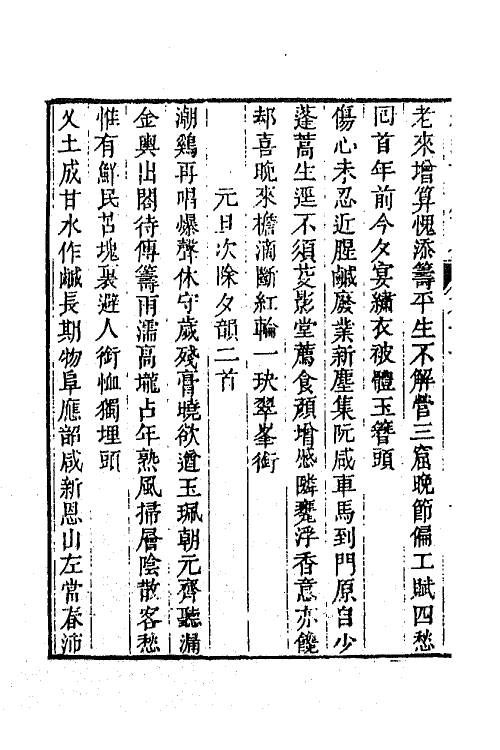 老來增算愧添籌平生不解營三窟晚節偏工賦四愁
囘首年前今夕宴繡衣被體玉簪頭
傷心未忍近腥鹹廢業新塵集阮咸車馬到門原自少
蓬蒿生逕不須芟影堂薦食顏增慼隣甕浮香意亦饞
却喜晚來檐滴斷紅輪一玦翠峯銜
元旦次除夕韻二首
潮鷄再唱爆聲休守歲殘膏曉欲遒玉珮朝元齊聽漏
金輿出閤待傳籌雨濡高壠占年熟風掃層陰散客愁
惟有鮮民苫塊裏避人銜恤獨埋頭
乂土成甘水作鹹長期物阜應韶咸新恩山左當春沛